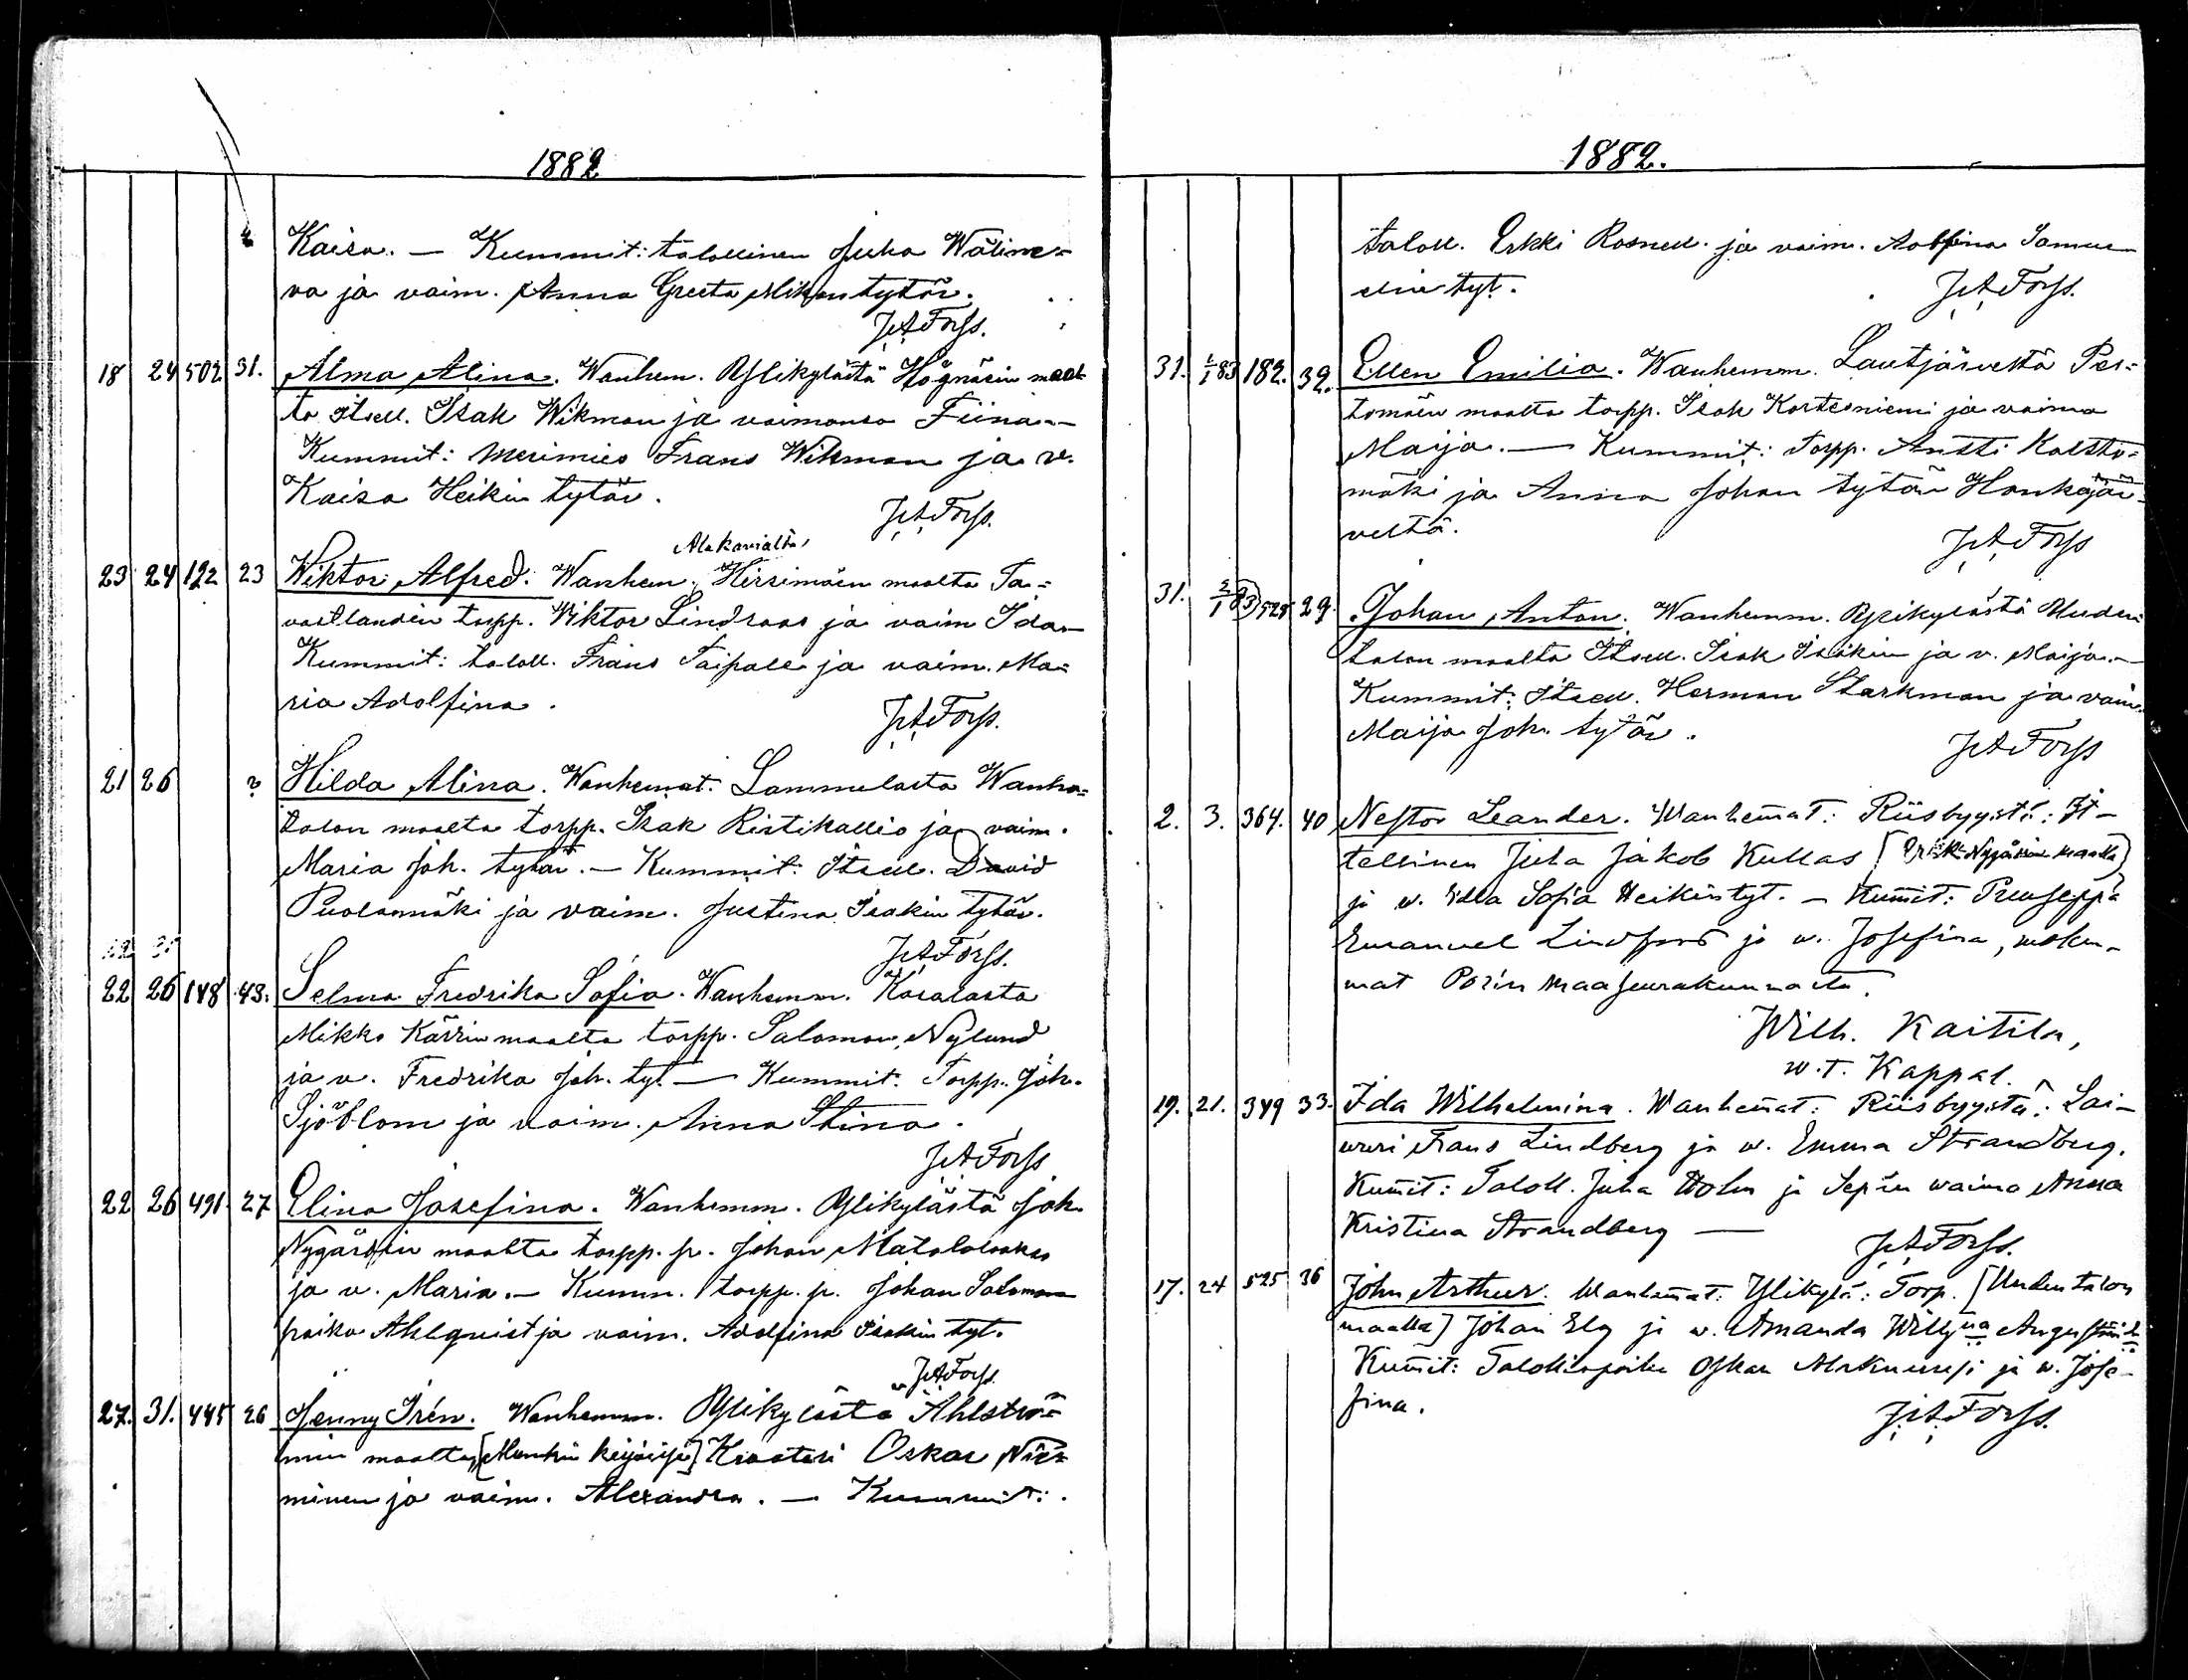 1882
Kaisa. — Kummit: talollinen Juha Wälime-
va ja vaim. Anna Greeta Mikon tytär.
JAForss.
18 24 502 31. Alma Alina. Wanhem. Ylikylästä Högnäsin maal-
ta itsell. Isak Wikman ja vaimonsa Fiina. —
Kummit: Merimies Frans Wikman ja v.
Kaisa Heikin tytär.
JAForss.
Alakarialta,
23 24 122 23 Wiktor Alfred. Wanhem. Hirsimäen maalta Ta-
vastlandin torpp. Wiktor Lindroos ja vaim Ida. —
Kummit: taloll. Frans Taipale ja vaim. Ma-
ria Adolfina.
JAForss.
21 26 ? Hilda Alina. Wanhemat. Lammelasta Wanha-
talon maalta torpp. Isak Ristikallio ja vaim.
Maria Joh. tytär. — Kummit: Itsell. David
Puolamäki ja vaim. Justina Isakin tytär.
JAForss.
22 26 148 43. Selma Fredrika Sofia. Wanhemm. Kasalasta
Mikko Kärrin maalta torpp. Salomon Nylund
ja v. Fredrika Joh. tyt. — Kummit: Torpp. Joh.
Sjöblom ja vaim. Anna Stina.
JAForss
22 26 491 27 Elina Josefina. Wanhemm. Ylikylästä Joh.
Nygårdin maalta torpp. p. Johan
ja v. Maria. — Kumm. torpp. p. Johan Salomon
poika Ahlqvist ja vaim. Adolfina Isakin tyt.
JAForss.
27. 31. 445 26 Jenny Irén. Wanhemm. Ylikylästä Åhlströ-
min maalta, Oskar Nie-
minen ja vaim. Alexandra. — Kummit:
1882.
taloll. Erkki Rosnell. ja vaim. Adolfina Samu-
elin tyt.
JAForss.
31. 1/1 83 182. 32. Ellen Emilia. Wanhemm. Lautjärveltä Pes-
tomäen maalta torpp. Isak Kortesniemi ja vaimo
Maija. — Kummit: Torpp. Antti Kaltto-
mäki ja Anna Johan tytär Honkajär-
veltä.
JAForss
31. 2/1 83 528 29. Johan Anton. Wanhemm. Ylikylästä Uuden
talon maalta Itsell. Isak Isakin ja v. Maija. —
Kummit: Itsell. Herman Starkman ja vaim.
Maija Joh. tytär.
JAForss
2. 3. 364. 40 Nestor Leander. Wanhemat: Riisbyystä: It-
tellinen Juha Jakob Kullas [Erik Nygårdin maalla]
ja w. Edla Sofia Heikintyt. — Kummit: Puuseppä
Emanuel Lindfors ja w. Josefina, molem-
mat Porin maaseurakunnasta.
Wilh. Kaitila,
w.t. Kappal.
19. 21. 349 33. Ida Wilhelmina. Wanhemat: Riisbyystä: Lai-
wuri Frans Lindberg ja w. Emma Strandberg.
Kummit: Taloll. Juha Holm ja Sepän waimo Anna
Kristina Strandberg —
JAForss.
17. 24 525 36 John Arthur. Wanhemat: Ylikylä: Torp. [Uudentalon
maalla] Johan Elg ja w. Amanda
Kummit: Talollispoika Oskar ja w. Jose-
fina.
JAForss.